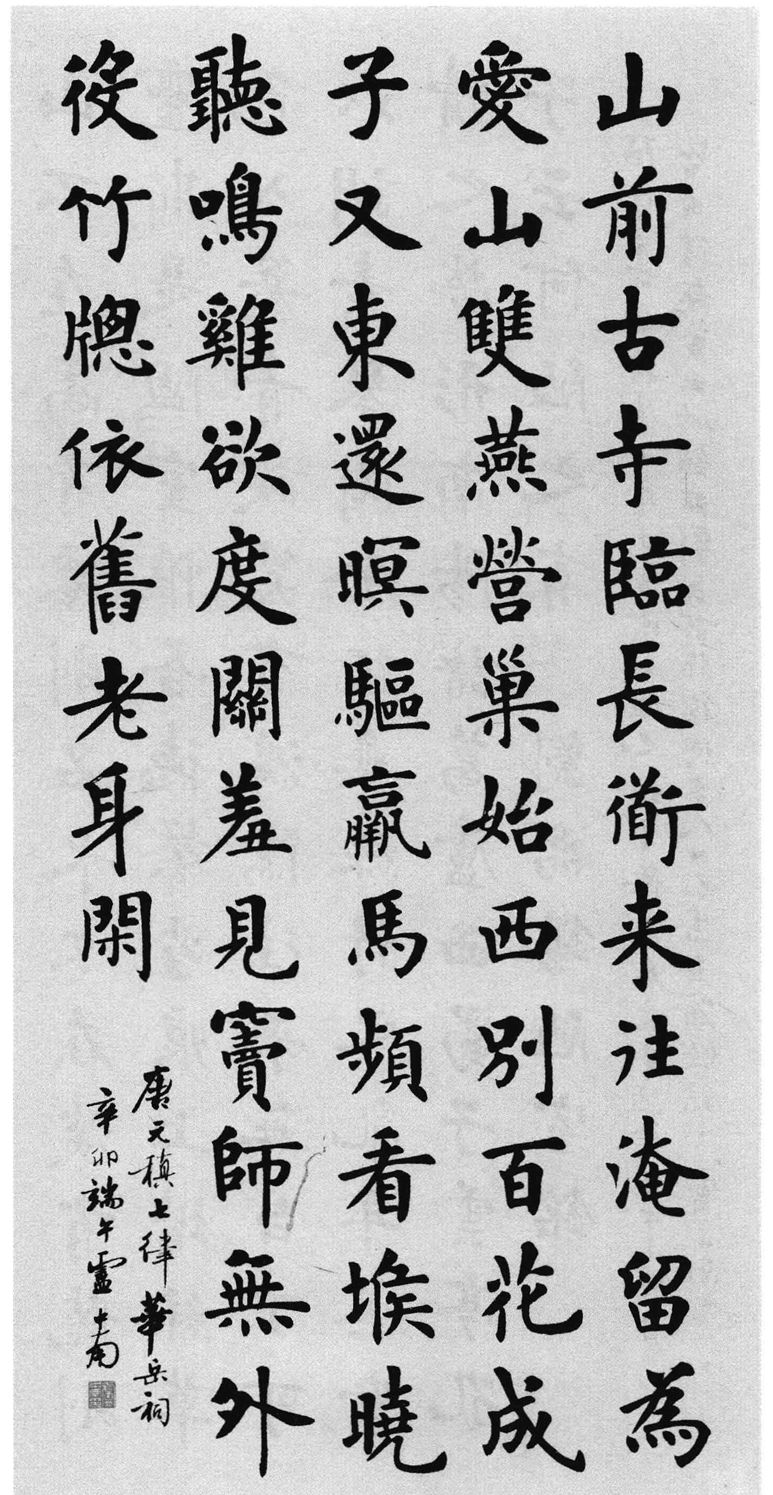 山前古寺臨長衜来往淹留為
愛山雙燕營巢始西別百花成
子又東還暝驅羸馬頻看堠曉
聽鳴雞欲度關羞見竇師無外
役竹牕依舊老身閑
唐元稹七律華岳祠
辛卯端午盧中南